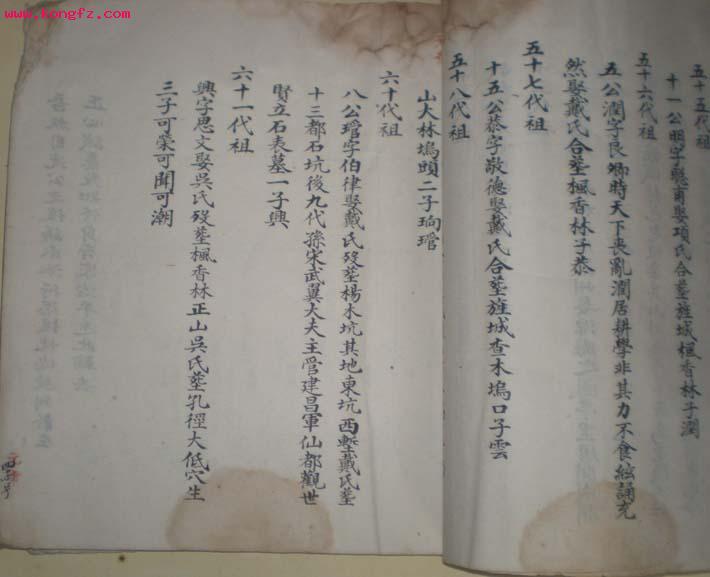 www.kongfz.com
五十五代祖
十一公明字懸甫娶項氏合塟旌城楓香林子潤
五十六代祖
五公潤字良卿時天下丧亂潤居耕學非其力不食絃誦充
然娶戴氏合塟楓香林子恭
五十七代祖
十五公恭字敬德娶戴氏合塟旌城查木塢口子雲
五十八代祖
山大林塢頭二子珦琯
六十代祖
八公琯字伯律娶戴氏殁塟楊木坑其地東坑西塹戴氏塟
十三都石坑後九代孫宋武翼大夫主管建昌軍仙都觀世
賢立石表墓一子興
六十一代祖
興字思文娶吳氏殁塟楓香林正山吳氏塟乳徑大低穴生
三子可榮可聞可潮